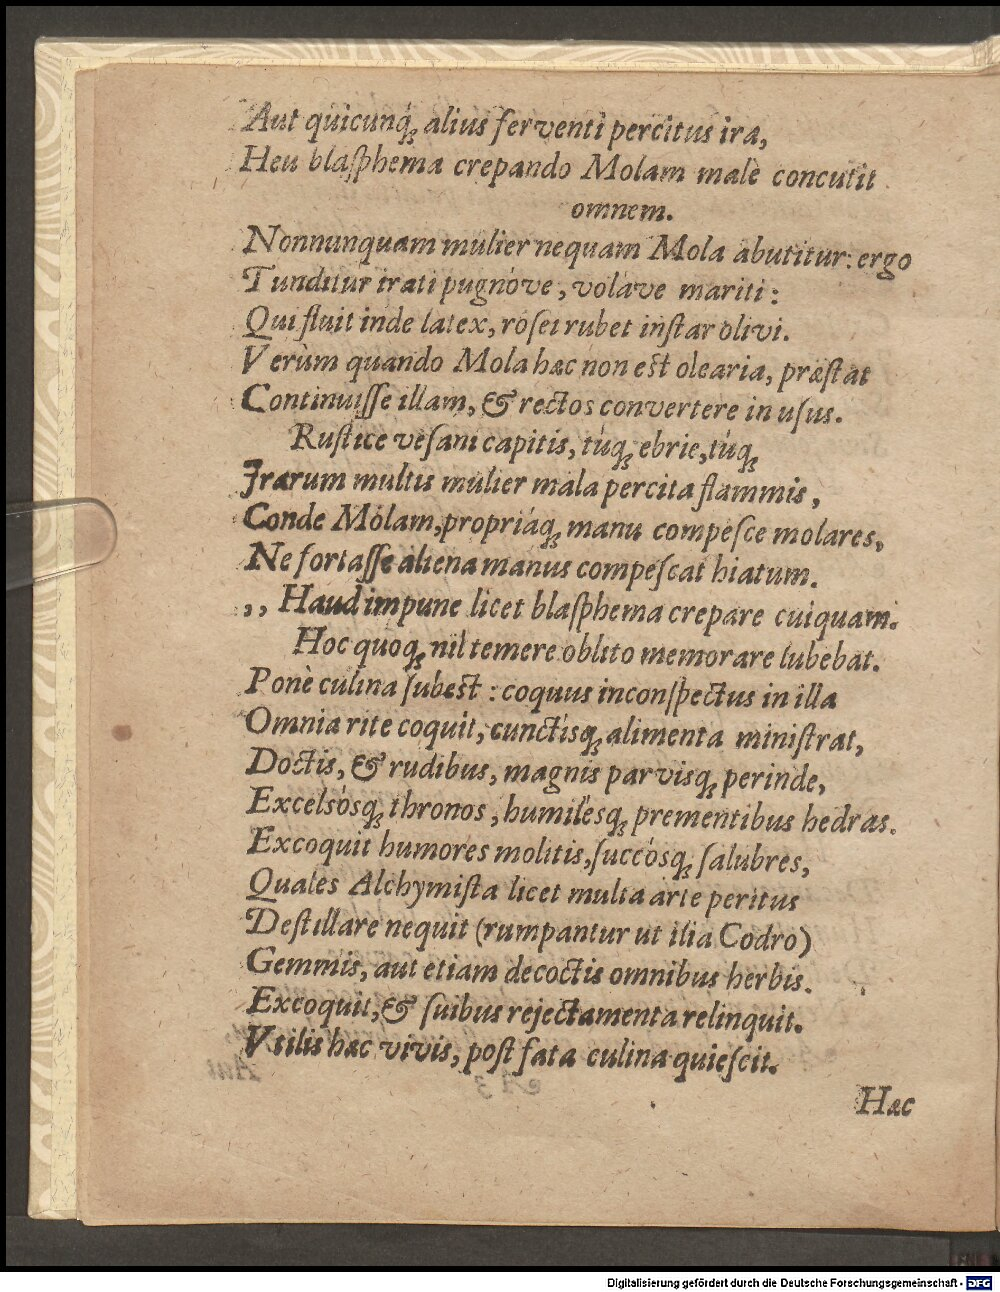 Aut quicunq́ꝫ alius ferventi percitus ira,
Heu blaſphema crepando Molam malè concutit
omnem.
Nonnunquam mulier nequam Mola abutitur: ergo
Tunditur irati pugnóve, voláve mariti:
Qui fluit inde latex, roſei rubet inſtar olivi.
Verùm quando Mola hæc non est olearia, præſtat
Continuiſſe illam, & rectos convertere in uſus.
Ruſtice veſani capitis, túqꝫ ebrie, túqꝫ
Irarum multis mulier mala percita flammis,
Conde Molam, propriáqꝫ manu compeſce molares,
Ne fortaſſe aliena manus compeſcat hiatum.
,, Haud impune licet blaſphema crepare cuiquam.
Hoc quoqꝫ nil temere oblito memorare lubebat.
Ponè culina ſubest: coquus inconſpectus in illa
Omnia rite coquit, cunctisqꝫ alimenta miniſtrat,
Doctis, & rudibus, magnis parvisqꝫ perinde,
Excelsósqꝫ thronos, humilesqꝫ prementibus hedras.
Excoquit humores molitis, ſuccósqꝫ ſalubres,
Quales Alchymiſta licet multa arte peritus
Deſtillare nequit (rumpantur ut ilia Codro)
Gemmis, aut etiam decoctis omnibus herbis.
Excoquit, & ſuibus rejectamenta relinquit.
Vtilis hæc vivis, poſt fata culina quieſcit.
Hæc
Digitalisierung gefördert durch die Deutsche Forschungsgemeinschaft - DFG